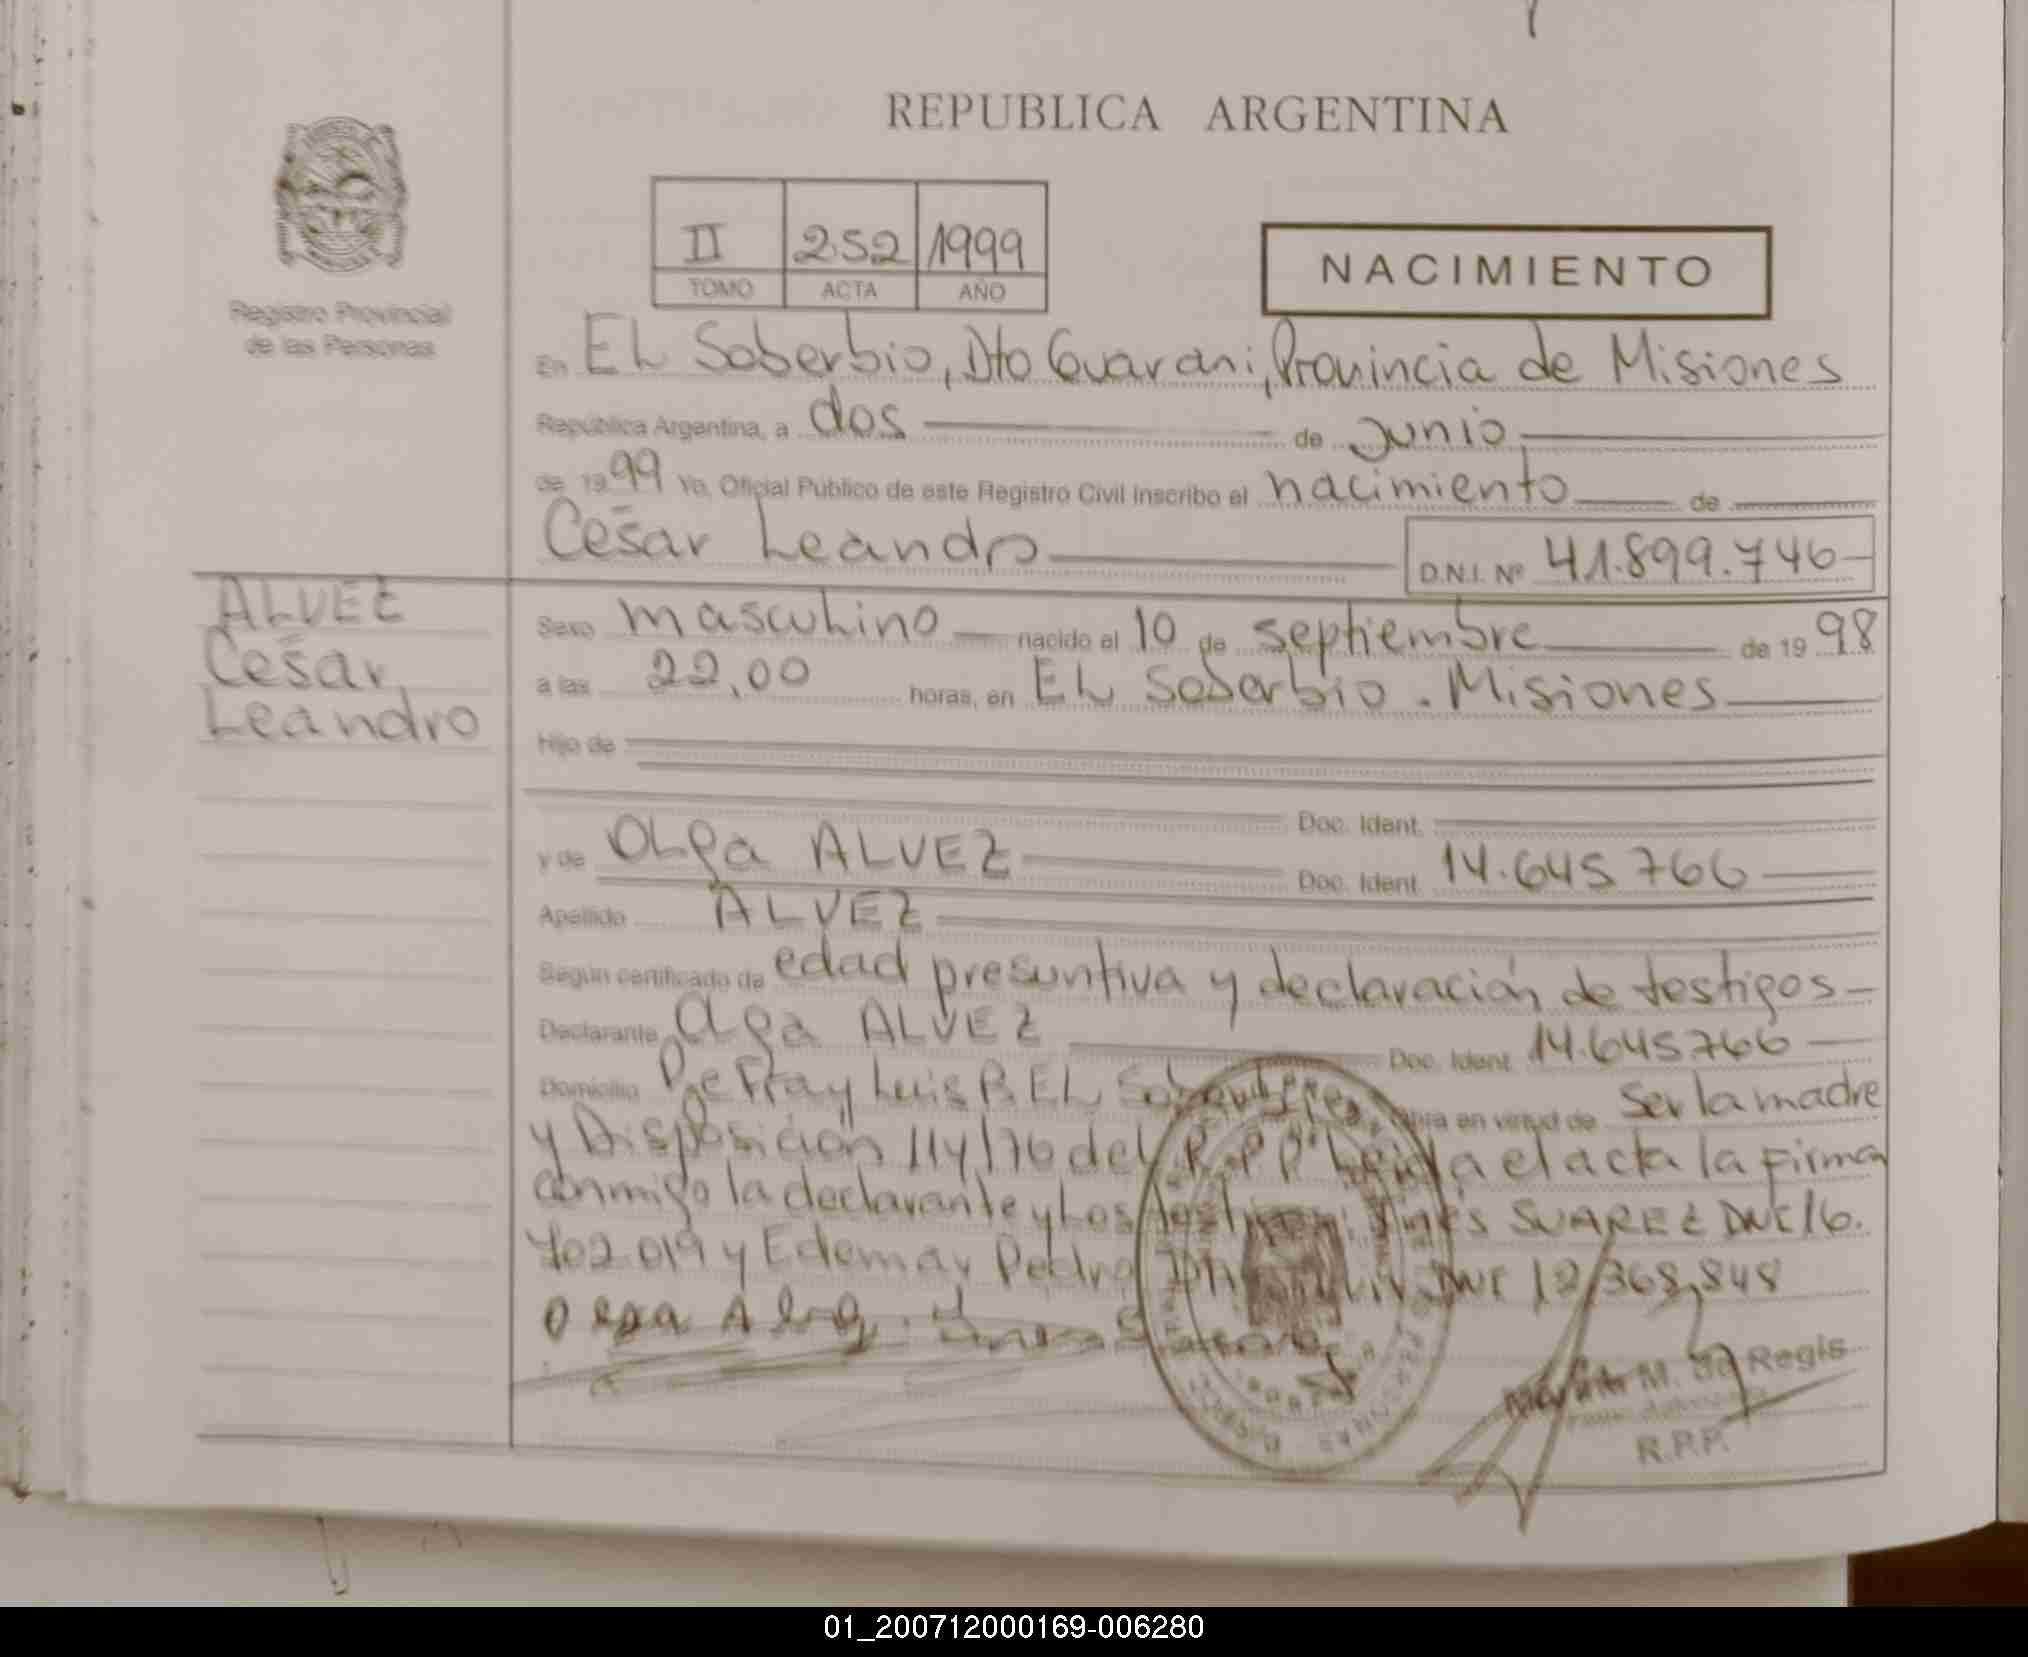 REPUBLICA ARGENTINA
Registro Provincial
de las Personas
II 252 1999
TOMO ACTA AÑO
NACIMIENTO
En EL Soberbio, Dto Guarani, Provincia de Misiones
República Argentina, a dos de Junio
de 1999 Yo, Oficial Público de este Registro Civil inscribo el nacimiento de
César Leandro D.N.I. Nº 41.899.746
ALVEZ
César
Leandro
Sexo masculino nacido el 10 de septiembre de 1998
a las 22,00 horas, en EL Soberbio. Misiones
Hijo de
Doc. Ident.
y de OLga ALVEZ Doc. Ident. 14.645766
Apellido ALVEZ
Según certificado de edad presuntiva y declaración de testigos
Declarante Olga ALVEZ Doc. Ident. 14.645766
Domicilio Pje Fray Luis B. EL en virtud de Ser la madre
y Disposición 114/76 del R.P.P. Leida el acta la firma
conmigo la declarante y Los testigos: Inés SUAREZ DNI 16.
702.019 y Edemar Pedro DNI 12.368,848
Olga
M. Regis
R.P.P.
01_200712000169-006280